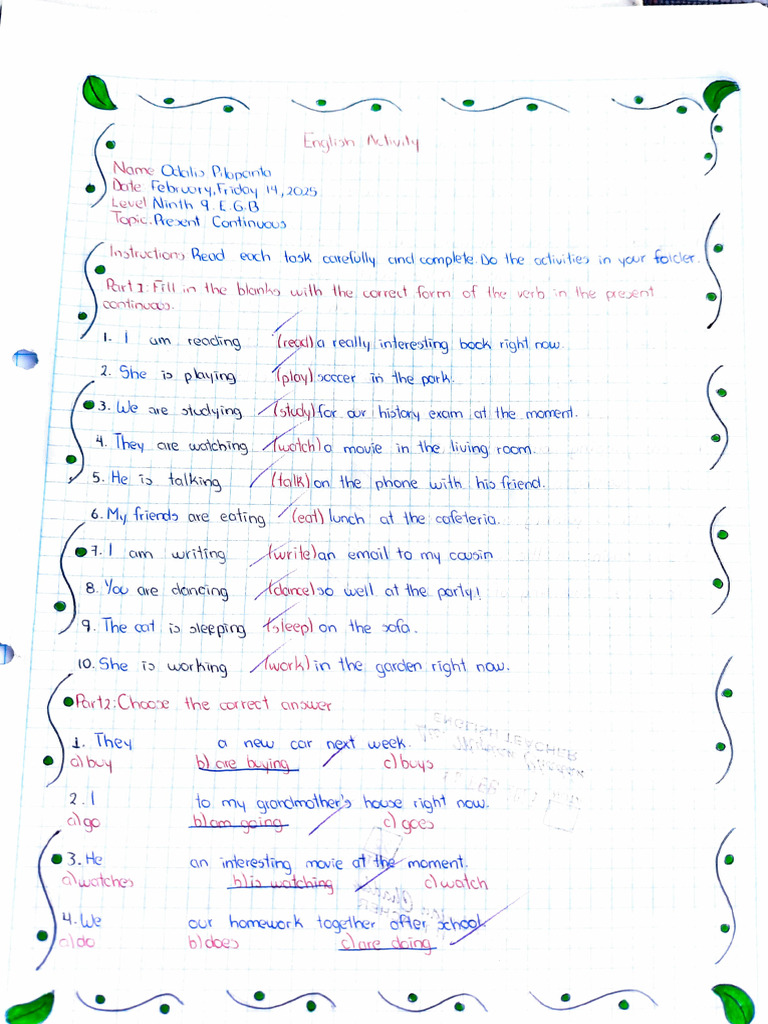 English Activity
Name Odalis Pilapanta
Date February, Friday 14, 2025
Level Ninth 9. E.G.B
Topic. Present Continuous
Instructions Read each task carefully and complete. Do the activities in your folder.
Part 1: Fill in the blanks with the correct form of the verb in the present
continuous.
1. I am reading (read) a really interesting book right now.
2. She is playing (play) soccer in the park.
3. We are studying (study) for our history exam at the moment.
4. They are watching (watch) a movie in the living room.
5. He is talking (talk) on the phone with his friend.
6. My friends are eating (eat) lunch at the cafeteria.
7. I am writing (write) an email to my cousin
8. You are dancing (dance) so well at the party!
9. The cat is sleeping (sleep) on the sofa.
10. She is working (work) in the garden right now.
Part 2: Choose the correct answer
1. They a new car next week.
a) buy b) are buying c) buys
2. I to my grandmother's house right now.
a) go b) am going c) goes
3. He an interesting movie at the moment.
a) watches b) is watching c) watch
4. We our homework together after school.
a) do b) does c) are doing
ENGLISH TEACHER